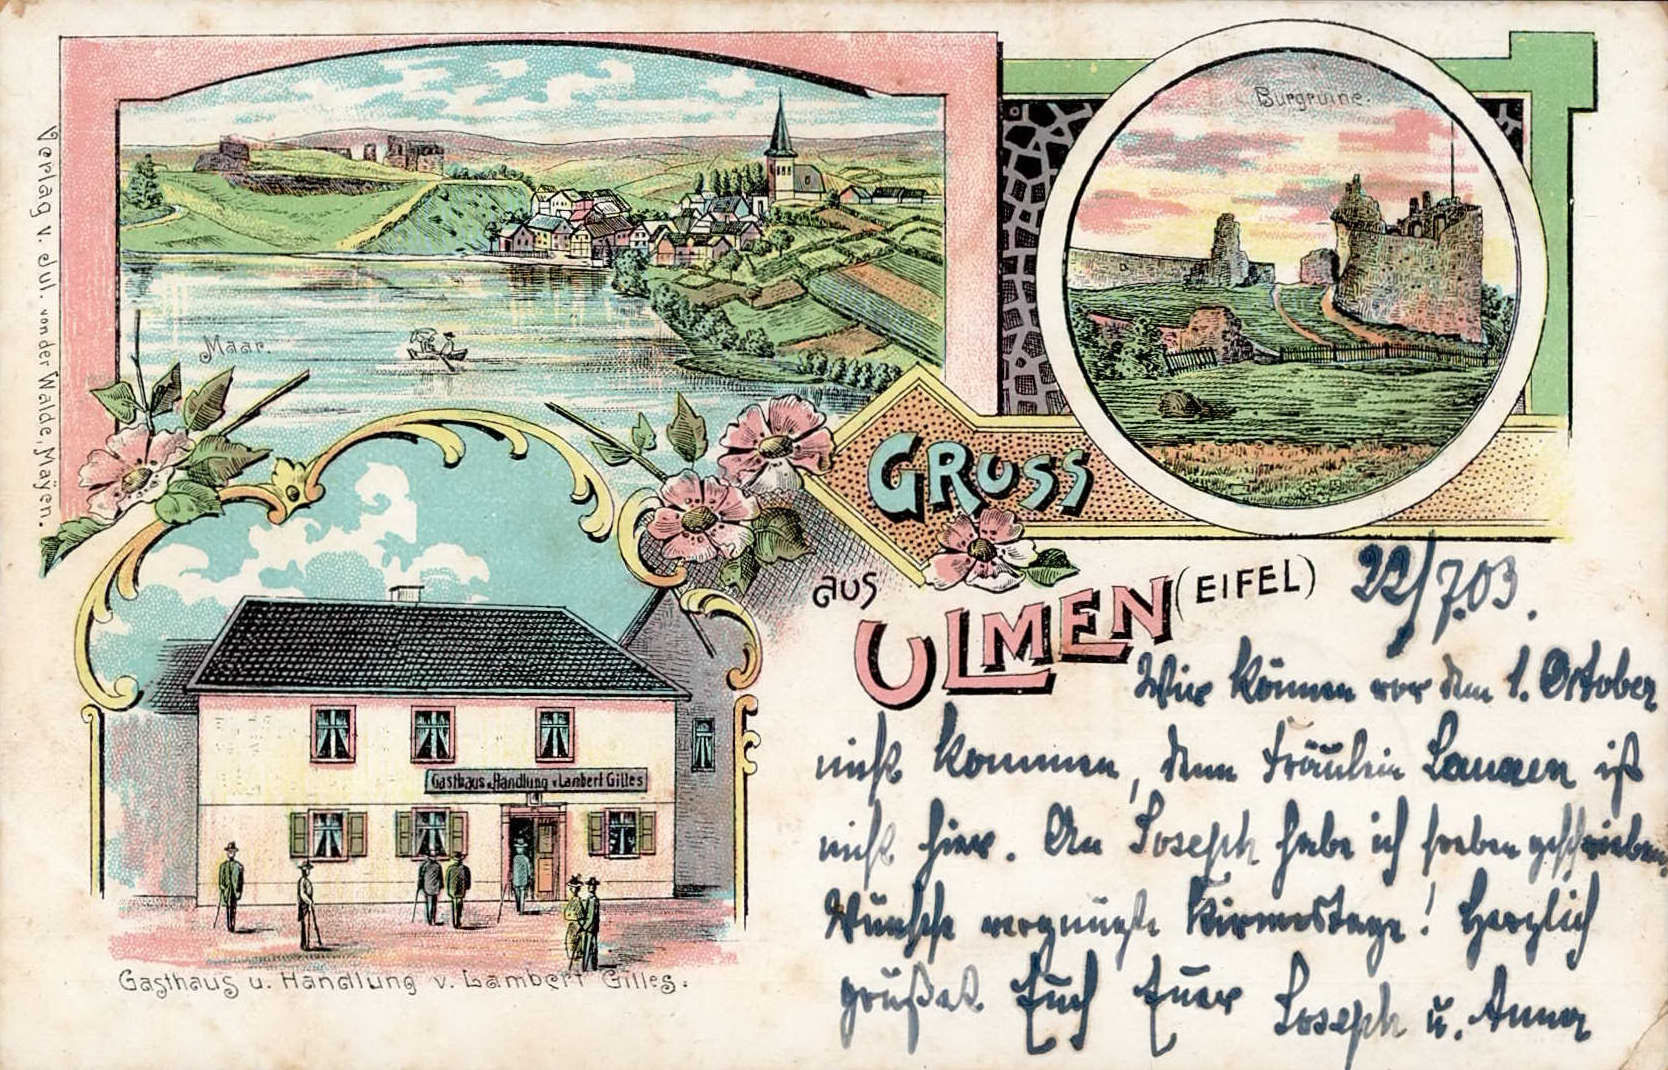 Verlag v. Jul. von der Walde, Mayen.
Maar.
Burgruine.
GRUSS
aus
ULMEN (EIFEL)
Gasthaus u. Handlung v. Lambert Gilles
Gasthaus u. Handlung v. Lambert Gilles.
22/7.03.
Wir können vor dem 1. Oktober
nicht kommen, denn Fräulein ist
nicht hier. An Joseph habe ich soeben geschrieben.
Wünsche vergnügte Kirmestage! Herzlich
grüßet Euch Euer Joseph u. Anna